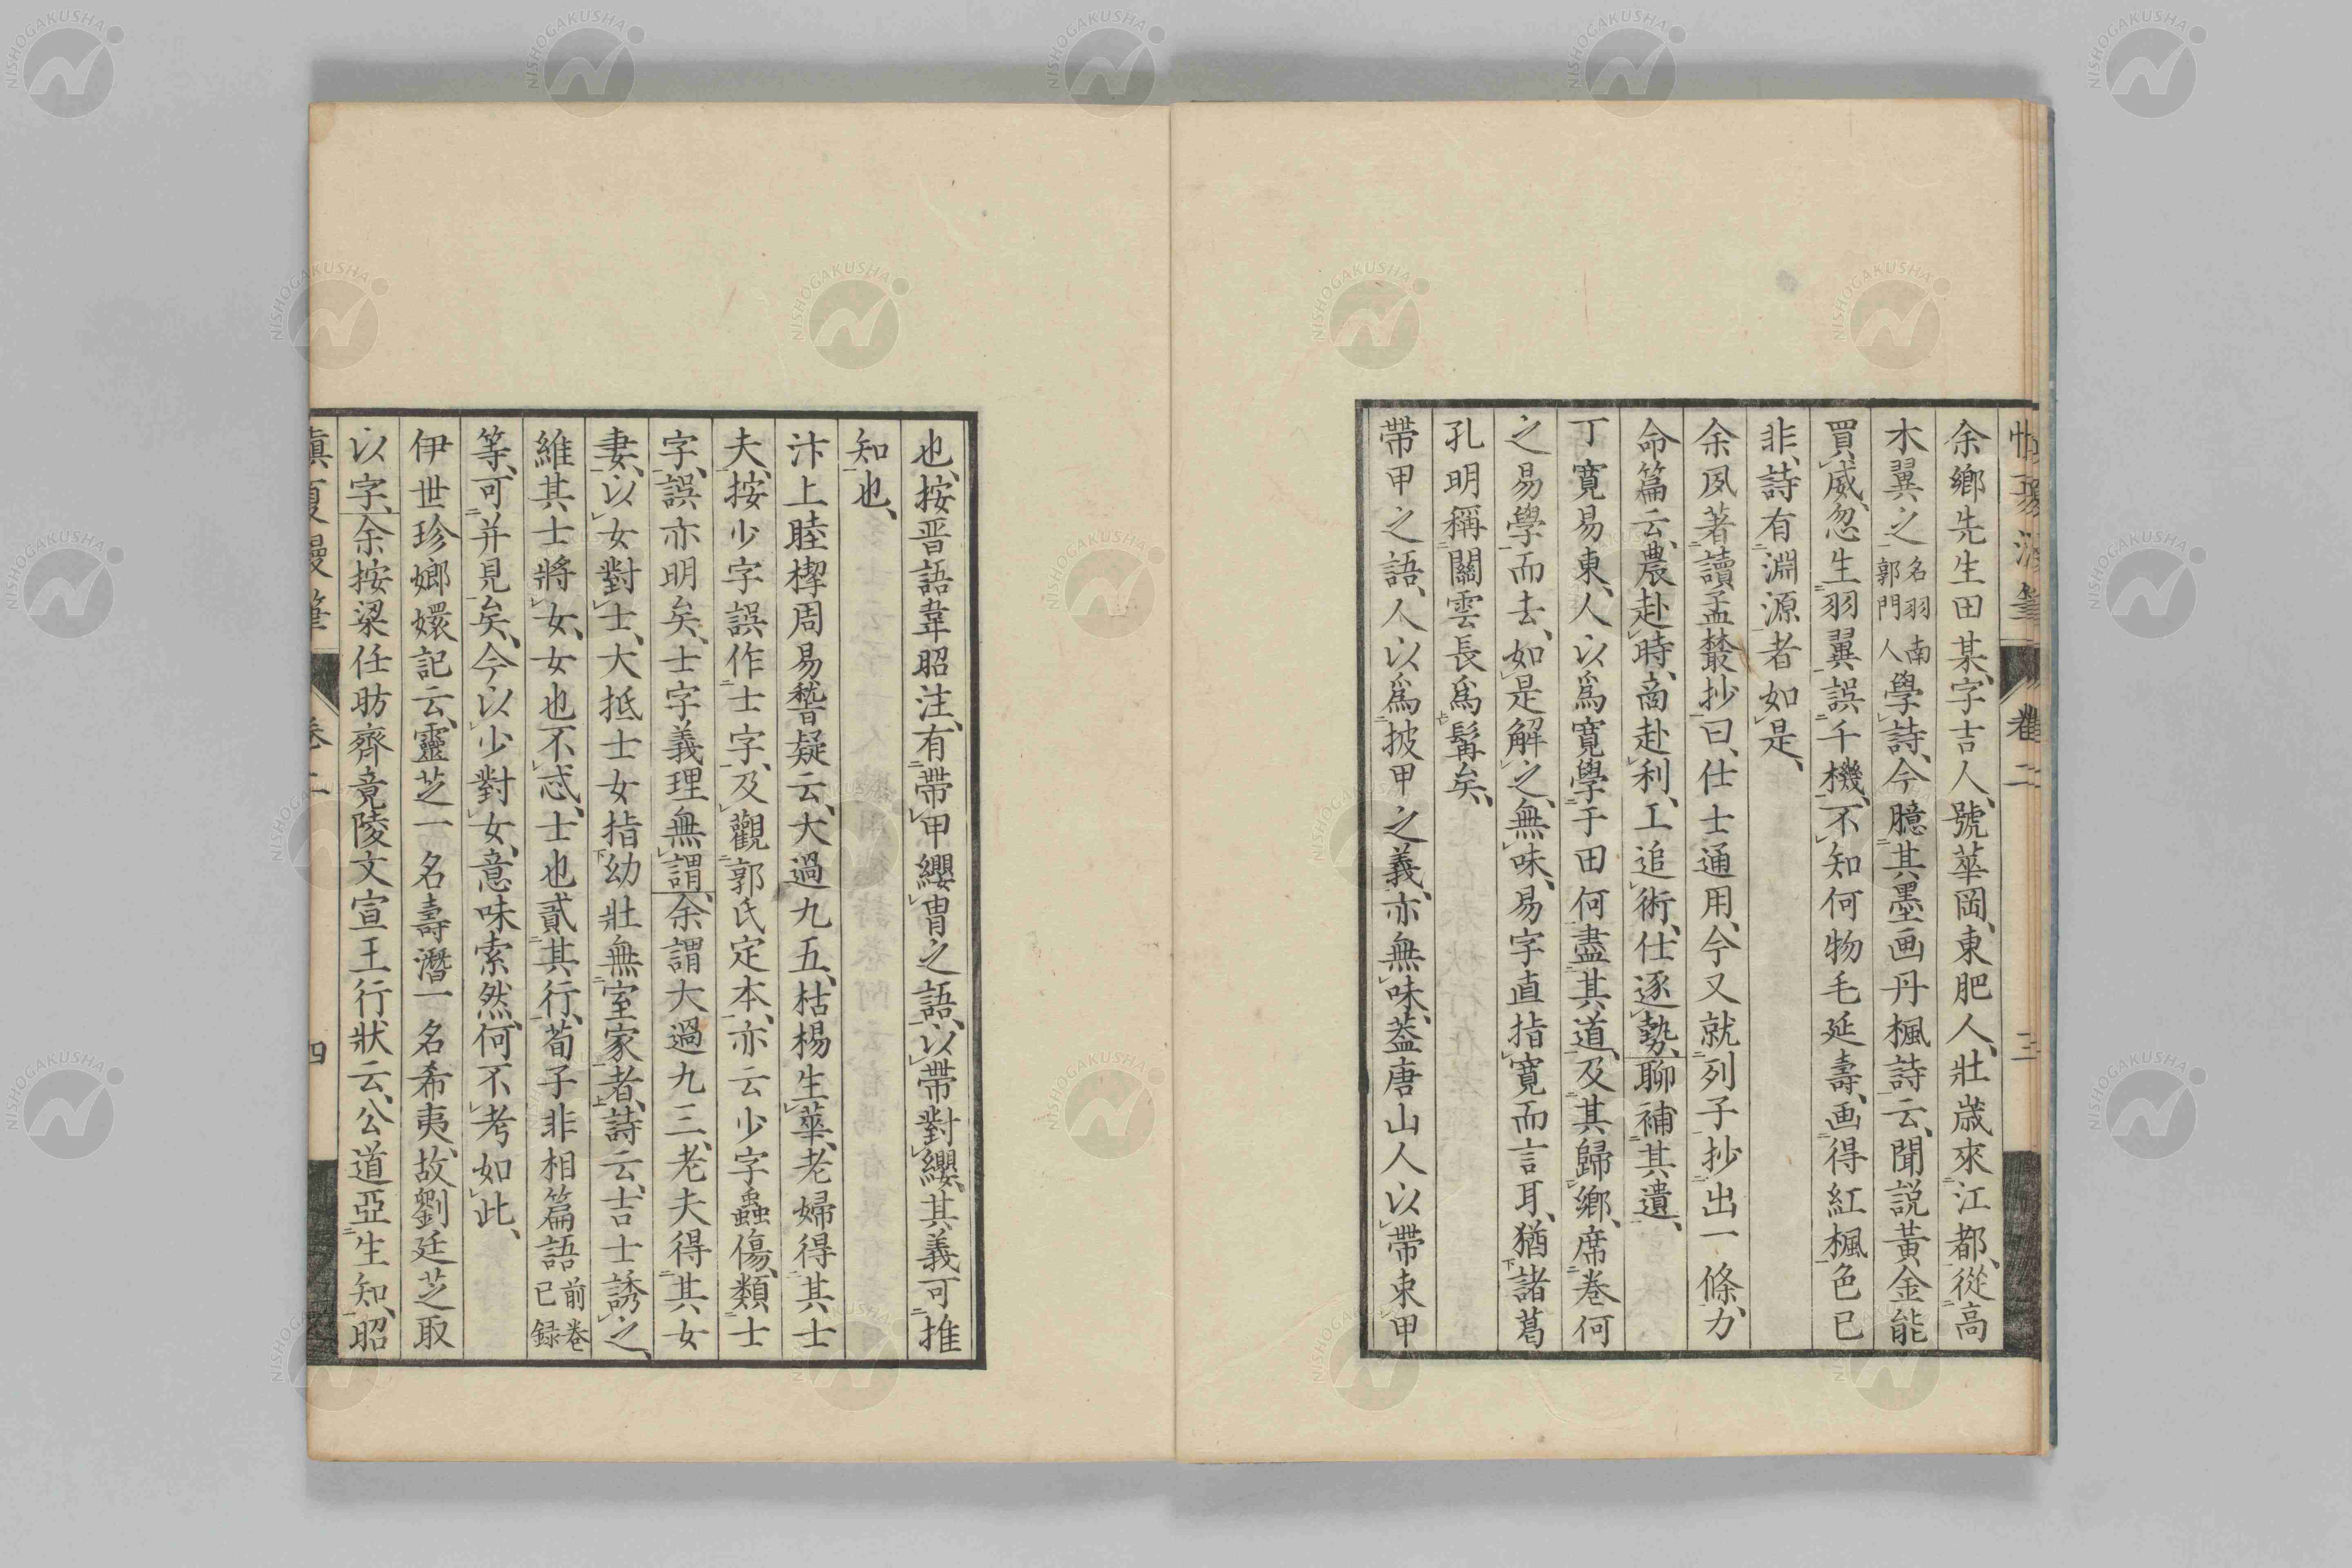 卷二
三
余鄉先生田某、字吉人、號華岡、東肥人、壯歲來江都、從高
木翼之名羽南郭門人學詩、今臆其墨画丹楓詩云、聞説黃金能
買威、忽生羽翼誤千機、不知何物毛延壽、画得紅楓色已
非、詩有淵源者如是、
余夙著讀孟叢抄曰、仕士通用、今又就列子抄出一條、力
命篇云、農赴時、商赴利、工追術、仕逐勢、聊補其遺、
丁寬易東、人以爲寬學于田何、盡其道、及其歸鄉、席卷何
之易學而去、如是解之、無味、易字直指寬而言耳、猶諸葛
孔明稱關雲長爲髯矣、
帶甲之語、人以爲披甲之義、亦無味、蓋唐山人以帶束甲
也、按晋語韋昭注、有帶甲纓胄之語、以帶對纓、其義可推
知也、
汴上睦㮮周易稽疑云、大過九五、枯楊生華、老婦得其士
夫、按少字誤作士字、及觀郭氏定本、亦云少字蟲傷、類士
字、誤亦明矣、士字義理無謂、余謂大過九三、老夫得其女
妻、以女對士、大抵士女指幼壯無室家者、詩云、吉士誘之、
維其士將女、女也不忒、士也貳其行、荀子非相篇語前卷已録
等、可并見矣、今以少對女、意味索然、何不考如此、
伊世珍嫏嬛記云、靈芝一名壽潛一名希夷、故劉廷芝取
以字、余按梁任昉齊竟陵文宣王行狀云、公道亞生知、昭
慎夏漫筆
卷二
四
NISHOGAKUSHA